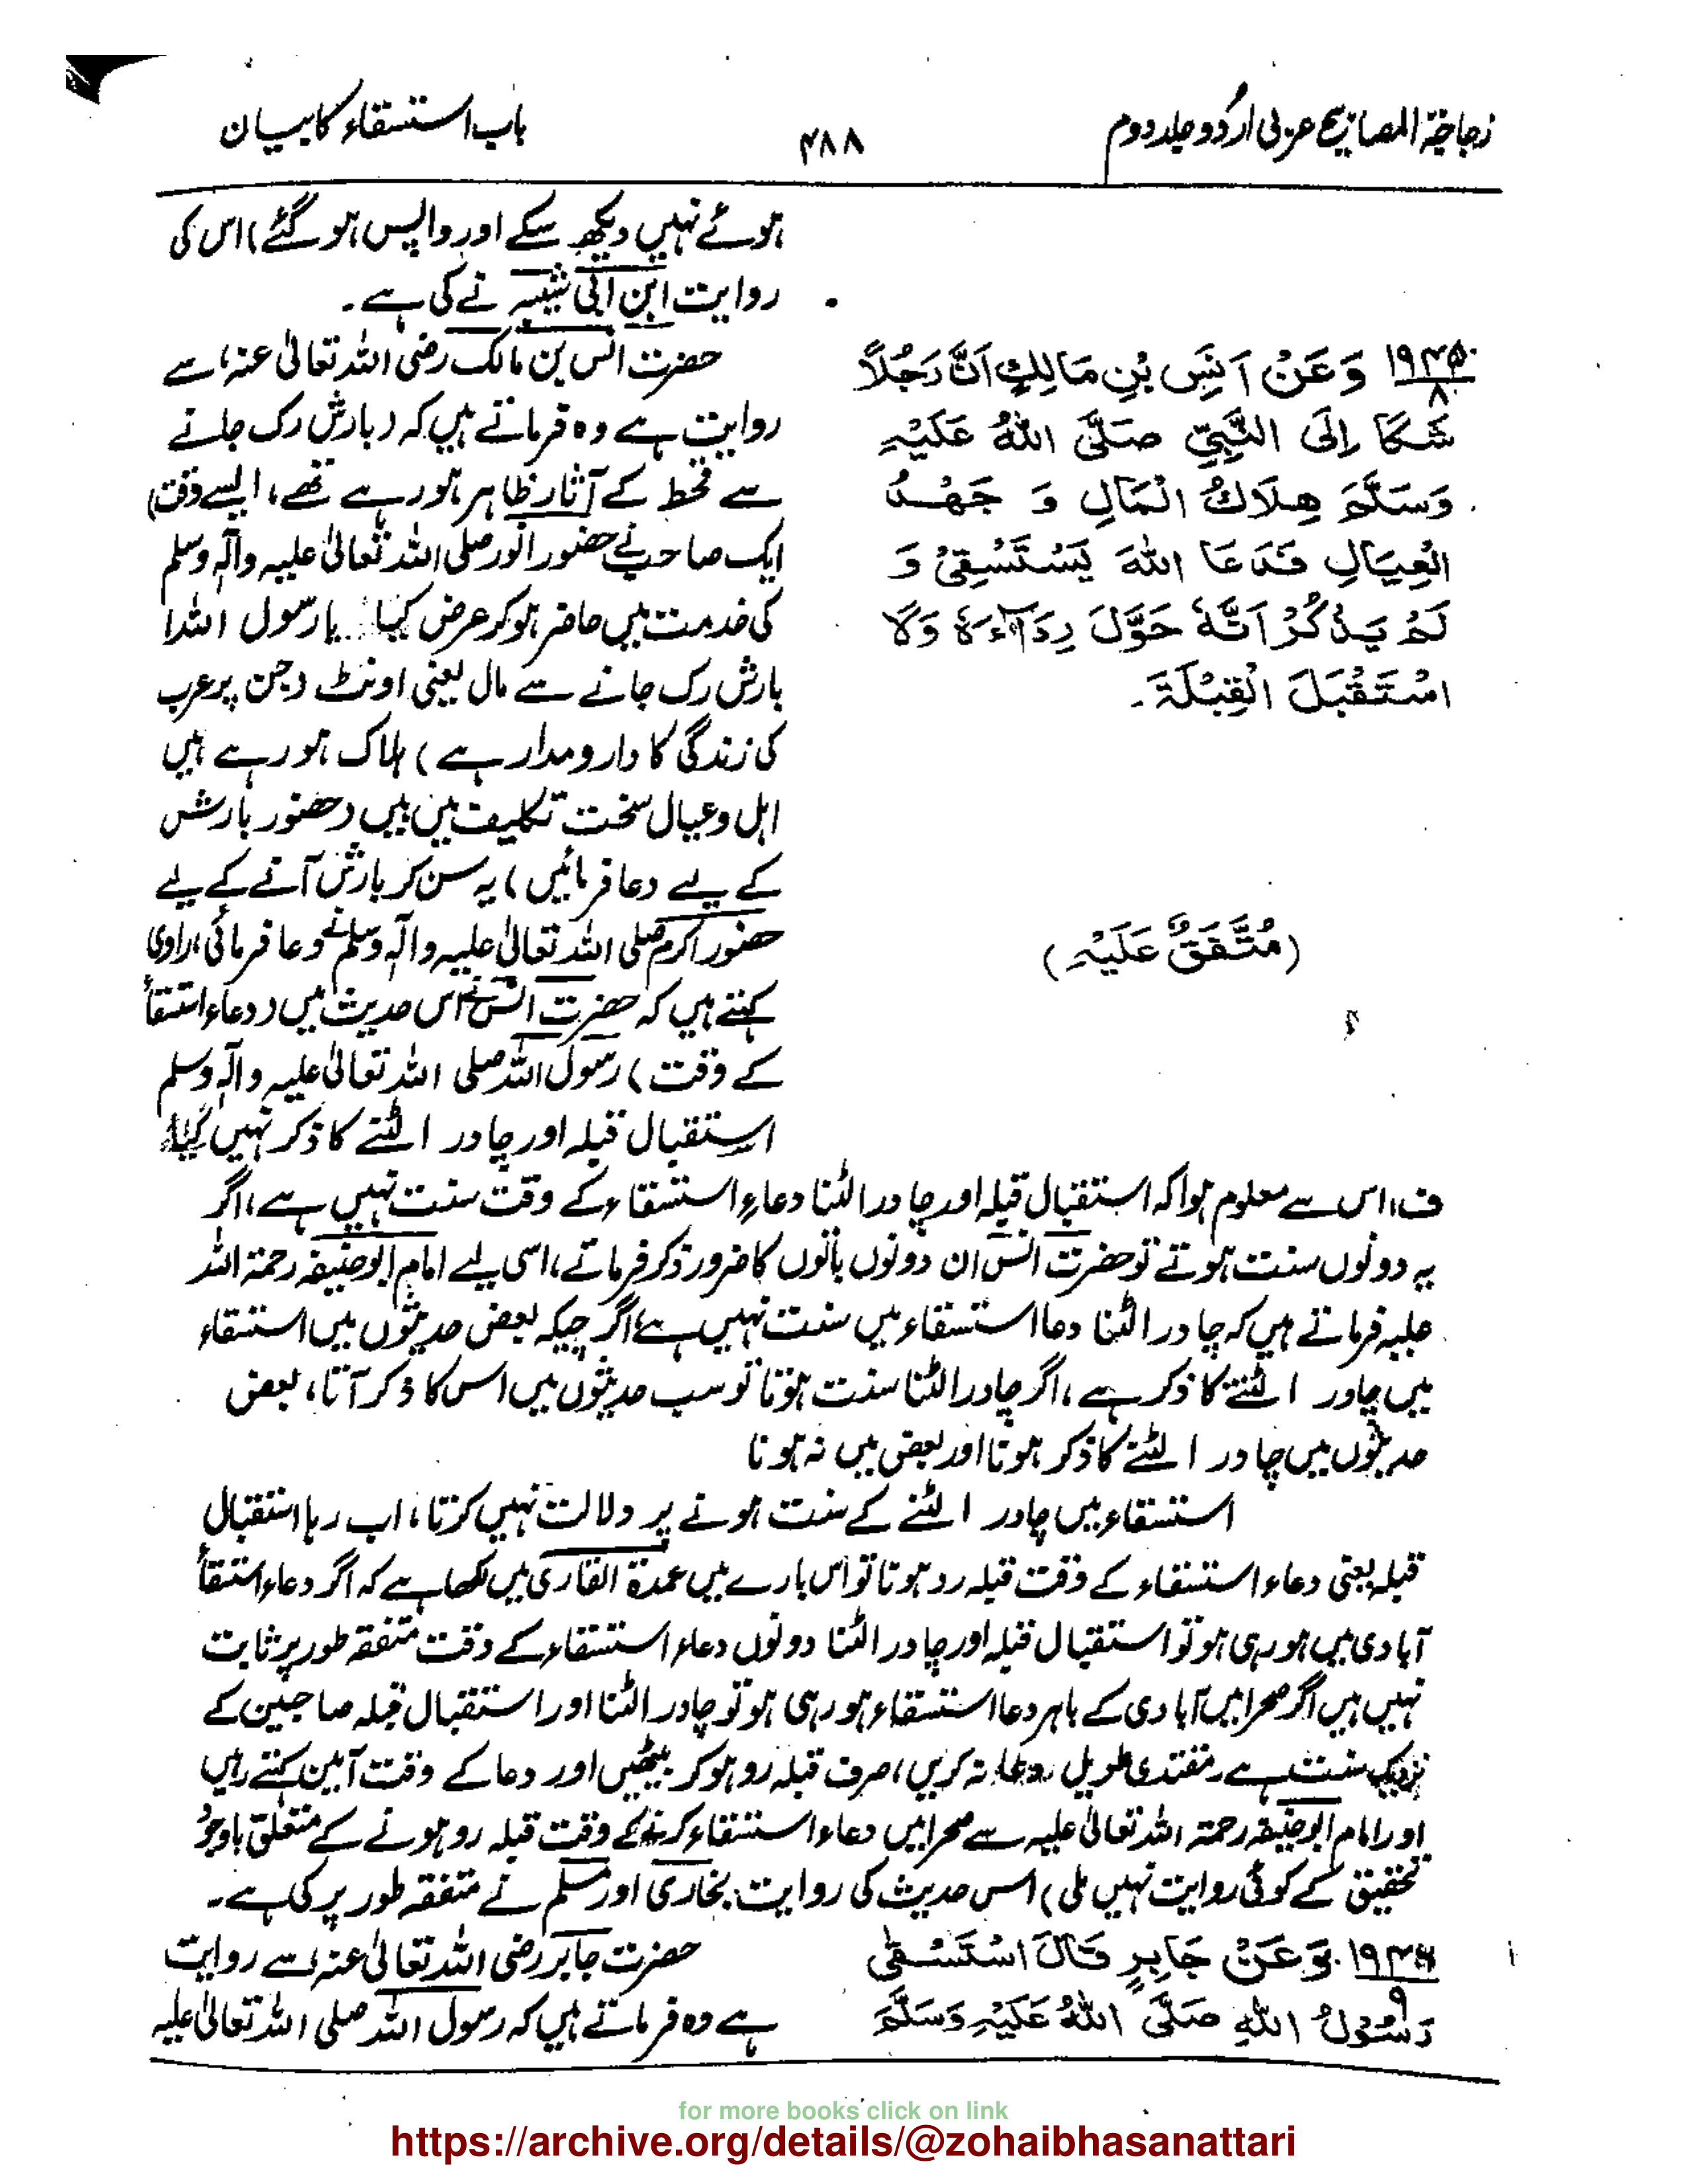 زجاجۃ المصابیح عربی اردو جلد دوم
۴۸۸
باب استسقاء کا بیان
ہوئے نہیں دیکھ سکے اور واپس ہو گئے) اس کی
روایت ابن ابی شیبہ نے کی ہے۔
۱۹۴۵/۸ وَعَنْ اَنَسِ بْنِ مَالِكٍ اَنَّ رَجُلًا
شَكَا اِلَى النَّبِيِّ صَلَّى اللهُ عَلَيْهِ
وَسَلَّمَ هِلَاكُ الْمَالِ وَ جَهْدُ
الْعِيَالِ فَدَعَا اللهَ يَسْتَسْقِيْ وَ
لَمْ يَذْكُرْ اَنَّهٗ حَوَّلَ رِدَآءَهٗ وَلَا
اسْتَقْبَلَ الْقِبْلَةَ۔
(مُتَّفَقٌ عَلَيْهِ)
حضرت انس بن مالک رضی اللہ تعالیٰ عنہ، سے
روایت ہے وہ فرماتے ہیں کہ (بارش رک جانے
سے قحط کے آثار ظاہر ہو رہے تھے، ایسے وقت)
ایک صاحب نے حضور انور صلی اللہ تعالیٰ علیہ وآلہ وسلم
کی خدمت میں حاضر ہو کر عرض کیا یا رسول اللہ!
بارش رک جانے سے مال یعنی اونٹ (جن پر عرب
کی زندگی کا دار و مدار ہے) ہلاک ہو رہے ہیں
اہل و عیال سخت تکلیف میں ہیں (حضور بارش
کے لیے دعا فرمائیں) یہ سن کر بارش آنے کے لیے
حضور اکرم صلی اللہ تعالیٰ علیہ وآلہ وسلم نے دعا فرمائی، راوی
کہتے ہیں کہ حضرت انس نے اس حدیث میں (دعاء استسقاء
کے وقت) رسول اللہ صلی اللہ تعالیٰ علیہ وآلہ وسلم
استقبال قبلہ اور چادر الٹنے کا ذکر نہیں کیا۔
ف: اس سے معلوم ہوا کہ استقبال قبلہ اور چادر الٹنا دعاءِ استسقاء کے وقت سنت نہیں ہے، اگر
یہ دونوں سنت ہوتے تو حضرت انس ان دونوں باتوں کا ضرور ذکر فرماتے، اسی لیے امام ابو حنیفہ رحمۃ اللہ
علیہ فرماتے ہیں کہ چادر الٹنا دعا استسقاء میں سنت نہیں ہے، اگرچیکہ بعض حدیثوں میں استسقاء
میں چادر الٹنے کا ذکر ہے، اگر چادر الٹنا سنت ہوتا تو سب حدیثوں میں اس کا ذکر آتا، بعض
حدیثوں میں چادر الٹنے کا ذکر ہوتا اور بعض میں نہ ہونا
استسقاء میں چادر الٹنے کے سنت ہونے پر دلالت نہیں کرتا، اب رہا استقبال
قبلہ یعنی دعاء استسقاء کے وقت قبلہ رو ہونا تو اس بارے میں عمدۃ القاری میں لکھا ہے کہ اگر دعاء استسقاء
آبادی میں ہو رہی ہو تو استقبال قبلہ اور چادر الٹنا دونوں دعاء استسقاء کے وقت متفقہ طور پر ثابت
نہیں ہیں اگر صحرا میں آبادی کے باہر دعا استسقاء ہو رہی ہو تو چادر الٹنا اور استقبال قبلہ صاحبین کے
نزدیک سنت ہے، مقتدی طویل دعا نہ کریں، صرف قبلہ رو ہو کر بیٹھیں اور دعا کے وقت آمین کہتے رہیں
اور امام ابو حنیفہ رحمۃ اللہ تعالیٰ علیہ سے صحرا میں دعاء استسقاء کرنے کے وقت قبلہ رو ہونے کے متعلق باوجود
تحقیق کے کوئی روایت نہیں ملی) اس حدیث کی روایت بخاری اور مسلم نے متفقہ طور پر کی ہے۔
۱۹۴۶/۹ وَعَنْ جَابِرٍ قَالَ اسْتَسْقٰى
رَسُوْلُ اللهِ صَلَّى اللهُ عَلَيْهِ وَسَلَّمَ
حضرت جابر رضی اللہ تعالیٰ عنہ، سے روایت
ہے وہ فرماتے ہیں کہ رسول اللہ صلی اللہ تعالیٰ علیہ
for more books click on link
https://archive.org/details/@zohaibhasanattari